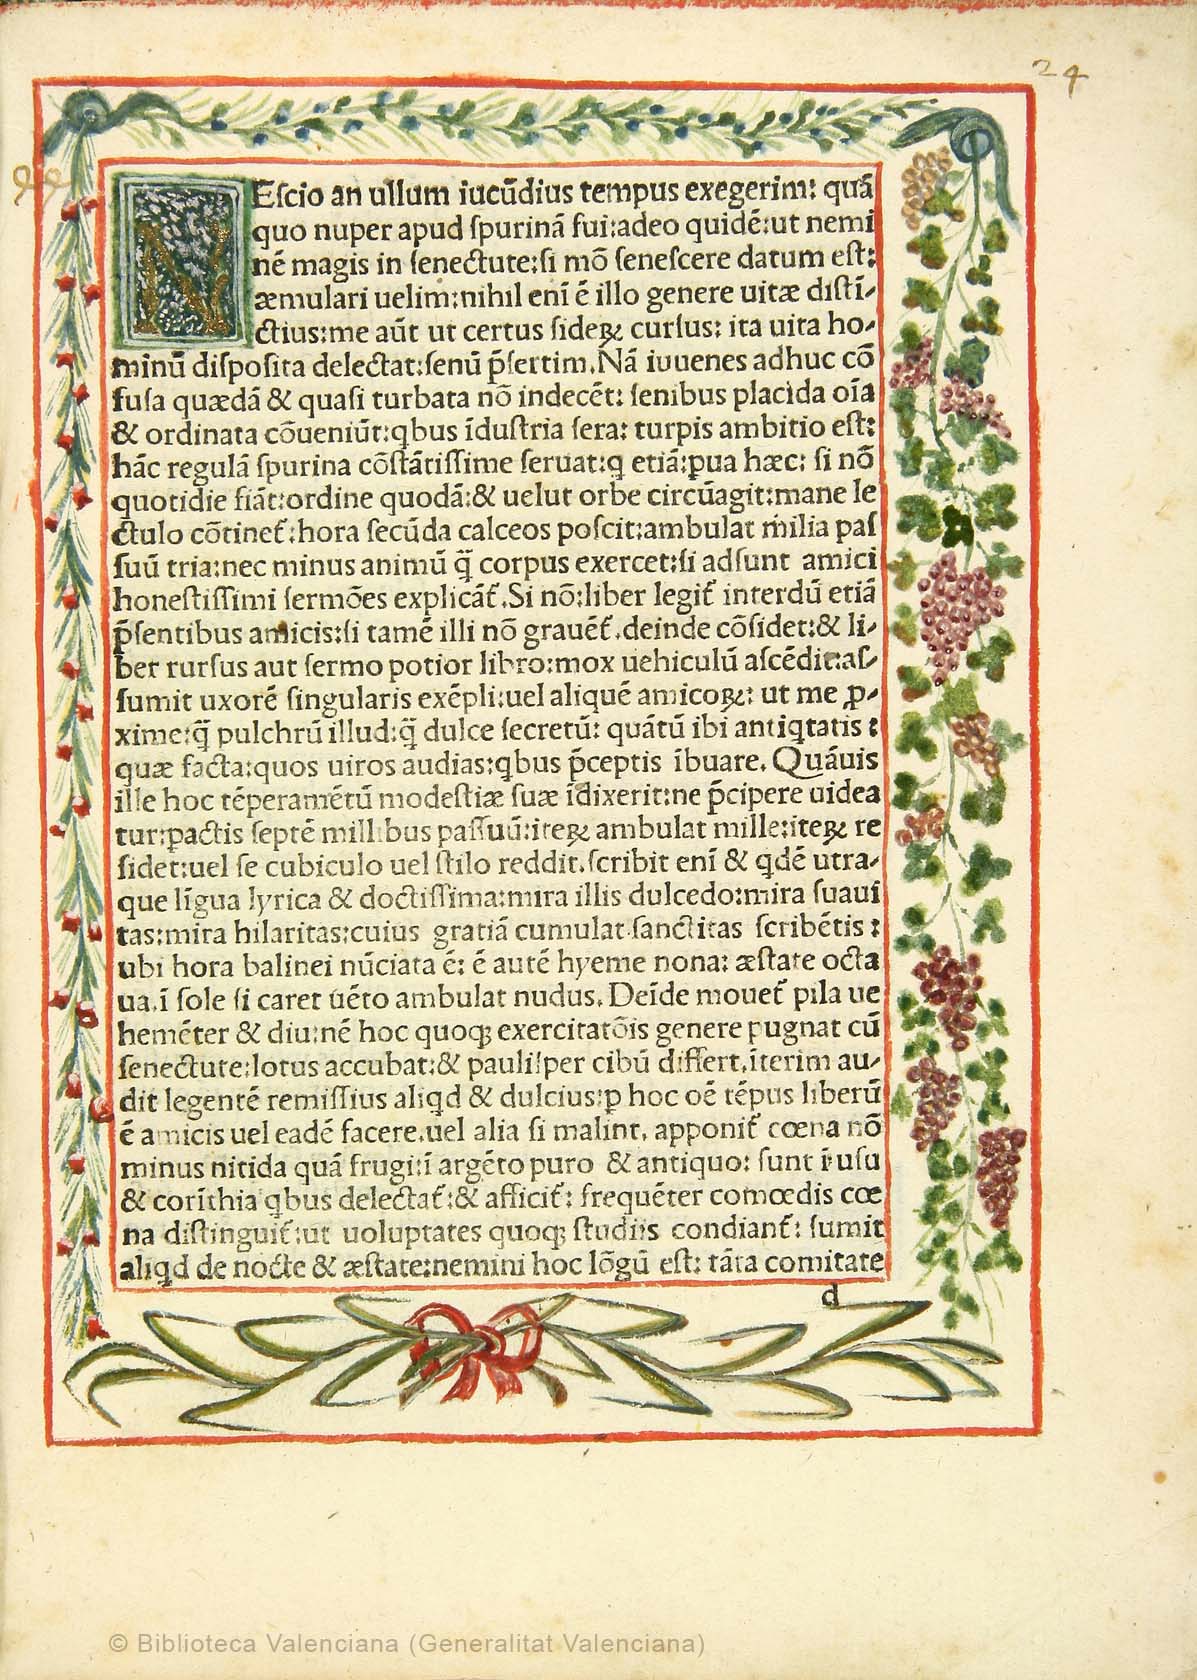 24
NEſcio an ullum iucũdius tempus exegerim: quã
quo nuper apud ſpurinã fui:adeo quidẽ:ut nemi
nẽ magis in ſenectute:ſi mõ ſeneſcere datum eſt:
æmulari uelim:nihil enĩ ẽ illo genere uitæ diſtĩ-
ctius:me aũt ut certus ſideꝝ curſus: ita uita ho-
minũ diſpoſita delectat:ſenũ p̃ſertim.Nã iuuenes adhuc cõ
fuſa quædã & quaſi turbata nõ indecẽt: ſenibus placida oĩa
& ordinata cõueniũt:qbus ĩduſtria ſera: turpis ambitio eſt:
hãc regulã ſpurina cõſtãtiſſime ſeruat:q etiã:ꝑua hæc: ſi nõ
quotidie fiãt:ordine quodã:& uelut orbe circũagit:mane le
ctulo cõtinet᷑:hora ſecũda calceos poſcit:ambulat m̃ilia paſ
ſuũ tria:nec minus animũ q̃ corpus exercet:ſi adſunt amici
honeſtiſſimi ſermões explicãt᷑.Si nõ:liber legit᷑ interdũ etiã
p̃ſentibus amicis:ſi tamẽ illi nõ grauẽt᷑.deinde cõſidet:& li-
ber rurſus aut ſermo potior libro:mox uehiculũ aſcẽdit:aſ-
ſumit uxorẽ ſingularis exẽpli:uel aliquẽ amicoꝝ: ut me ꝓ-
xime:q̃ pulchrũ illud:q̃ dulce ſecretũ: quãtũ ibi antiqtatis :
quæ facta:quos uiros audias:qbus p̃ceptis ĩbuare. Quãuis
ille hoc tẽperamẽtũ modeſtiæ ſuæ ĩdixerit:ne p̃cipere uidea
tur:ꝑactis ſeptẽ millibus paſſuũ:iteꝝ ambulat mille:iteꝝ re
ſidet:uel ſe cubiculo uel ſtilo reddit.ſcribit enĩ & qdẽ utra-
que lĩgua lyrica & doctiſſima:mira illis dulcedo:mira ſuaui
tas:mira hilaritas:cuius gratiã cumulat ſanctitas ſcribẽtis :
ubi hora balinei nũciata ẽ: ẽ autẽ hyeme nona: æſtate octa
ua.ĩ ſole ſi caret uẽto ambulat nudus. Deĩde mouet᷑ pila ue
hemẽter & diu:nẽ hoc quoqꝫ exercitatõis genere pugnat cũ
ſenectute:lotus accubat:& pauliſper cibũ differt.ĩterim au-
dit legentẽ remiſſius aliqd & dulcius:ꝑ hoc oẽ tẽpus liberũ
ẽ amicis uel eadẽ facere.uel alia ſi malint. apponit᷑ cœna nõ
minus nitida quã frugi:ĩ argẽto puro & antiquo: ſunt ĩ uſu
& corĩthia qbus delectat᷑:& afficit᷑: frequẽter comœdis cœ
na diſtinguit᷑:ut uoluptates quoqꝫ ſtudiis condiant᷑: ſumit
aliqd de nocte & æſtate:nemini hoc lõgũ eſt: tãta comitate
d
© Biblioteca Valenciana (Generalitat Valenciana)